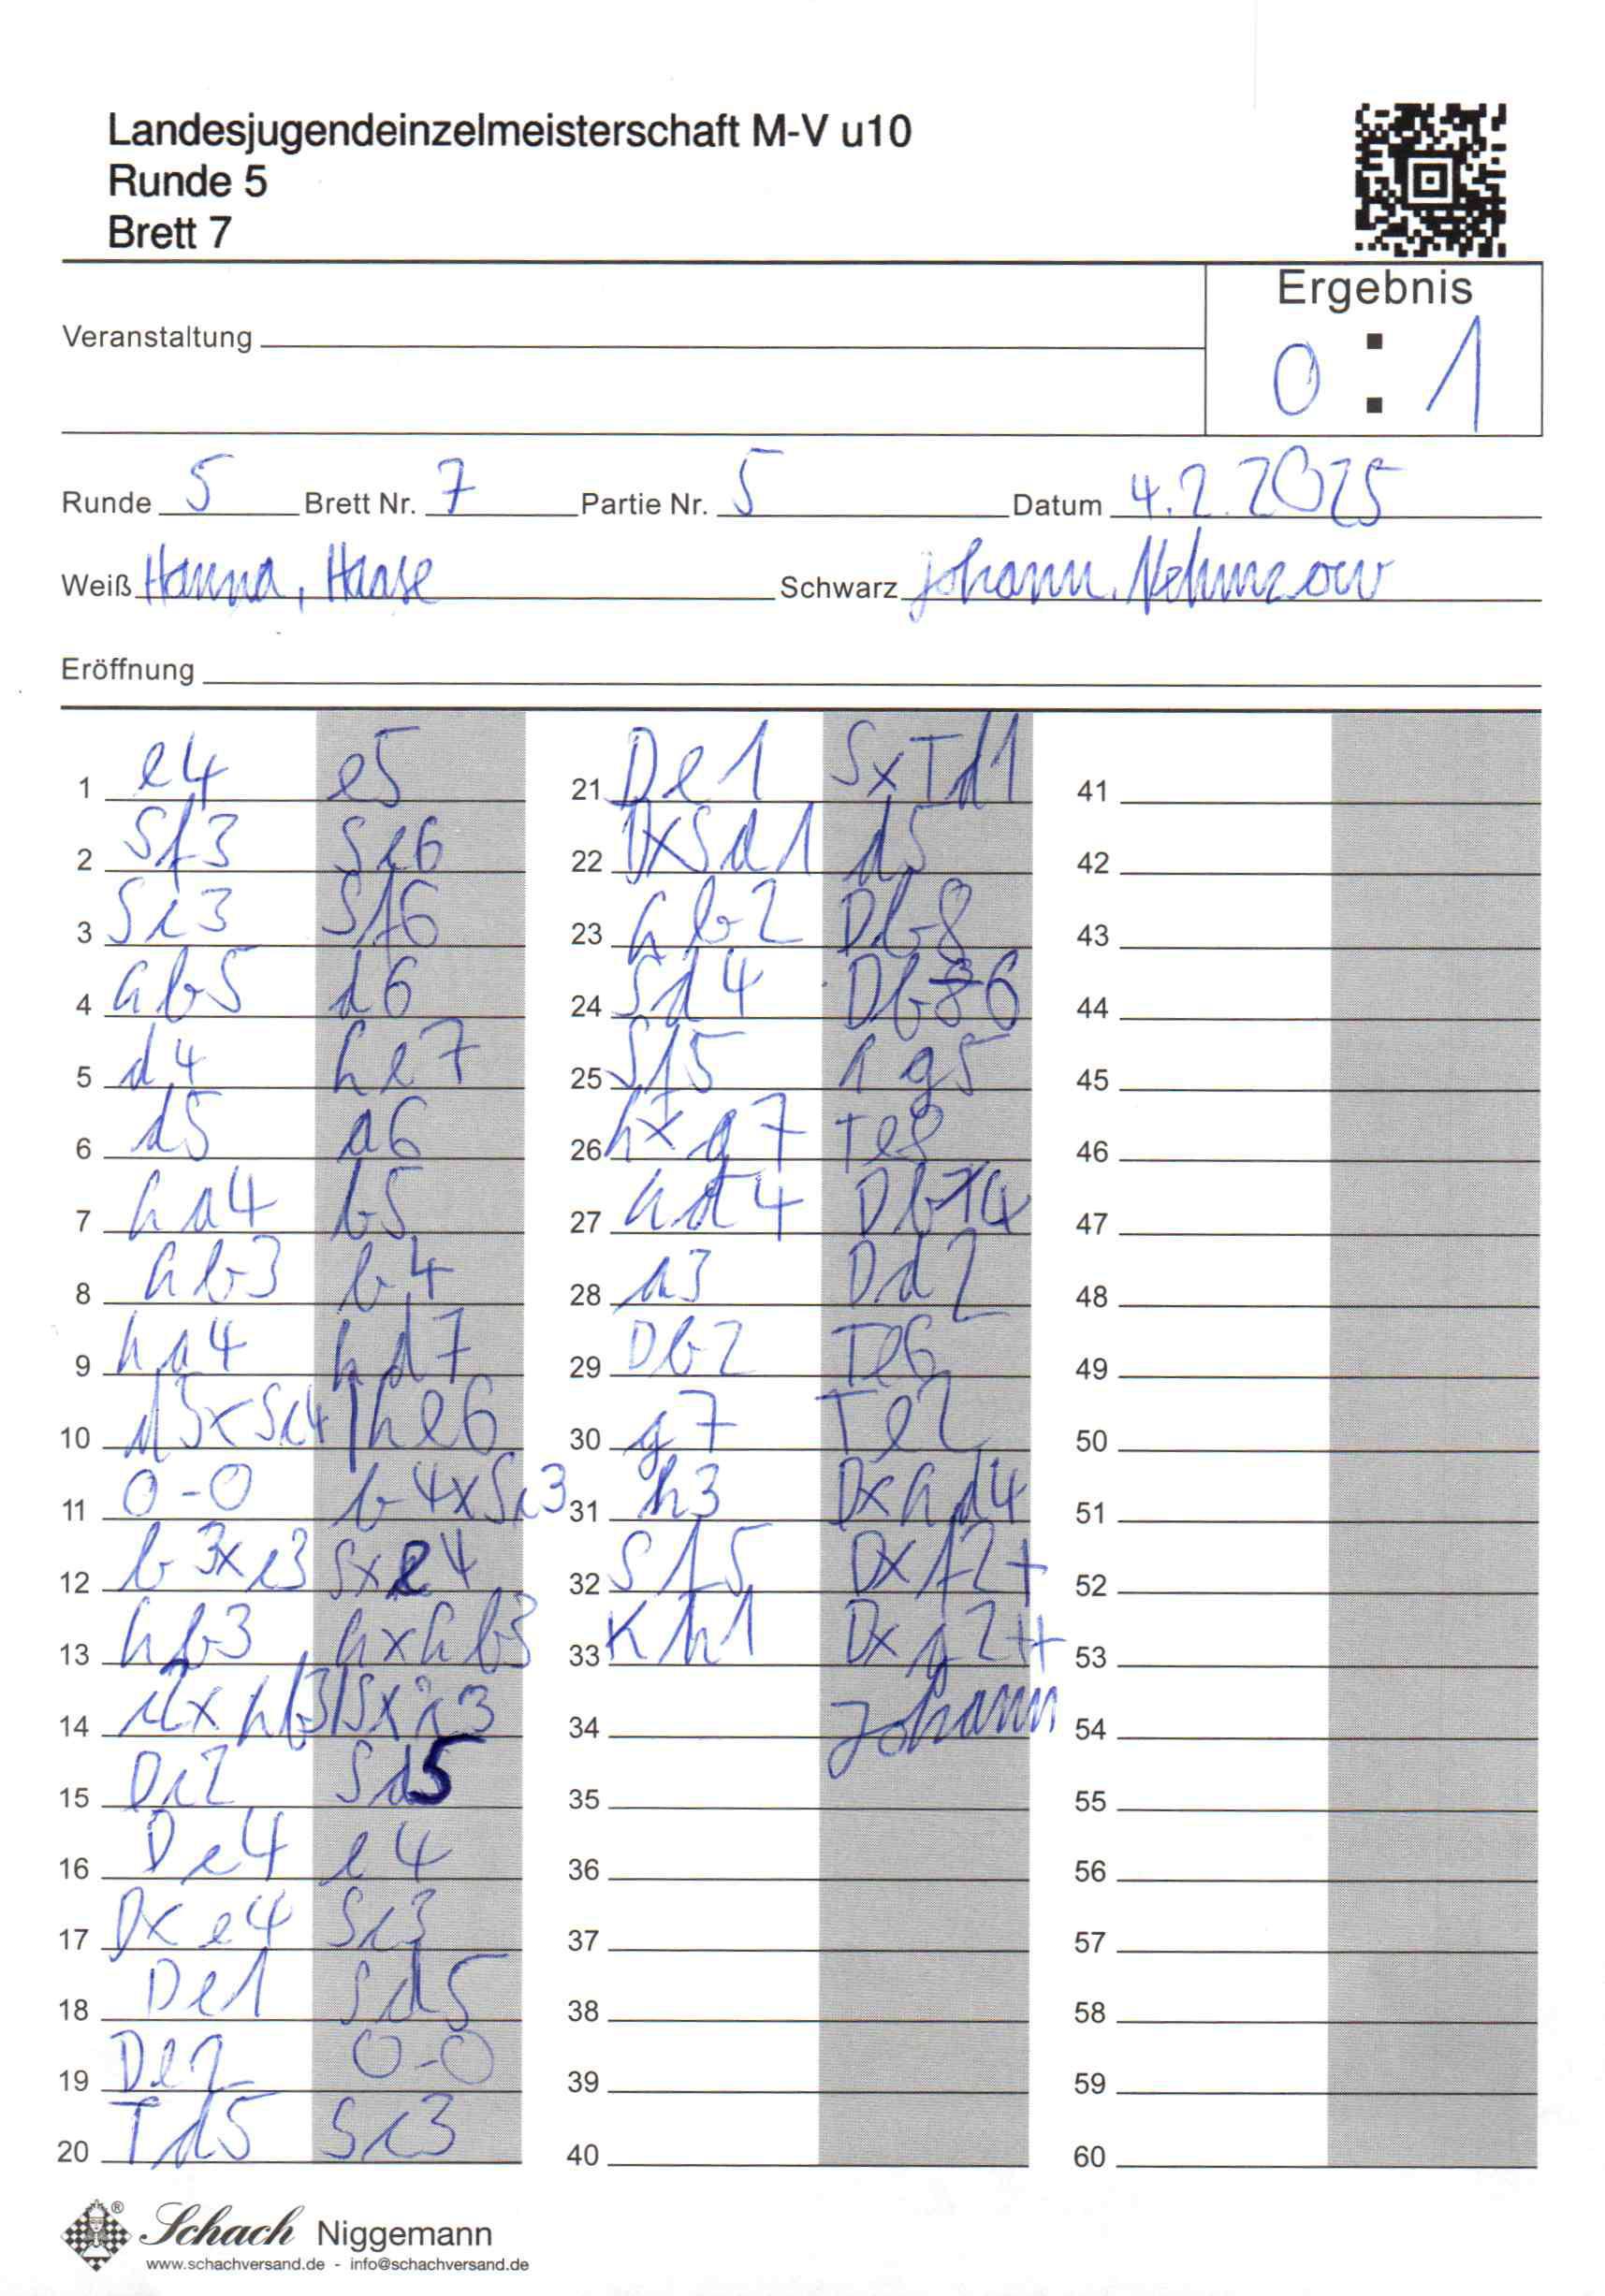 Landesjugendeinzelmeisterschaft M-V u10
Runde 5
Brett 7
Ergebnis
0 : 1
Veranstaltung
Runde 5 Brett Nr. 7 Partie Nr. 5 Datum 4.2.2025
Weiß Hanna, Haase Schwarz Johann. Nehmzow
Eröffnung
1 e4 e5
2 Sf3 Sc6
3 Sc3 Sf6
4 hb5 d6
5 d4 he7
6 d5 a6
7 ha4 b5
8 hb3 b4
9 ha4 hd7
10 d5xSc4 | he6
11 0-0 b4xSc3
12 b3xc3 Sxe4
13 hb3 hxhb3
14 c2xhb3 | Sxc3
15 Dc2 Sd5
16 Dc4 e4
17 Dxe4 Sc3
18 De1 Sd5
19 De2 0-0
20 Td5 Sc3
21 De1 SxTd1
22 DxSd1 d5
23 hb2 Db8
24 Sd4 Db6
25 Sf5 hg5
26 hxg7 Te8
27 hd4 Db4
28 a3 Dd2
29 Db2 Te6
30 g7 Te2
31 h3 Dxhd4
32 Sf5 Dxf2+
33 Kh1 Dxg2++
34 Johann
35
36
37
38
39
40
41
42
43
44
45
46
47
48
49
50
51
52
53
54
55
56
57
58
59
60
Schach Niggemann
www.schachversand.de - info@schachversand.de